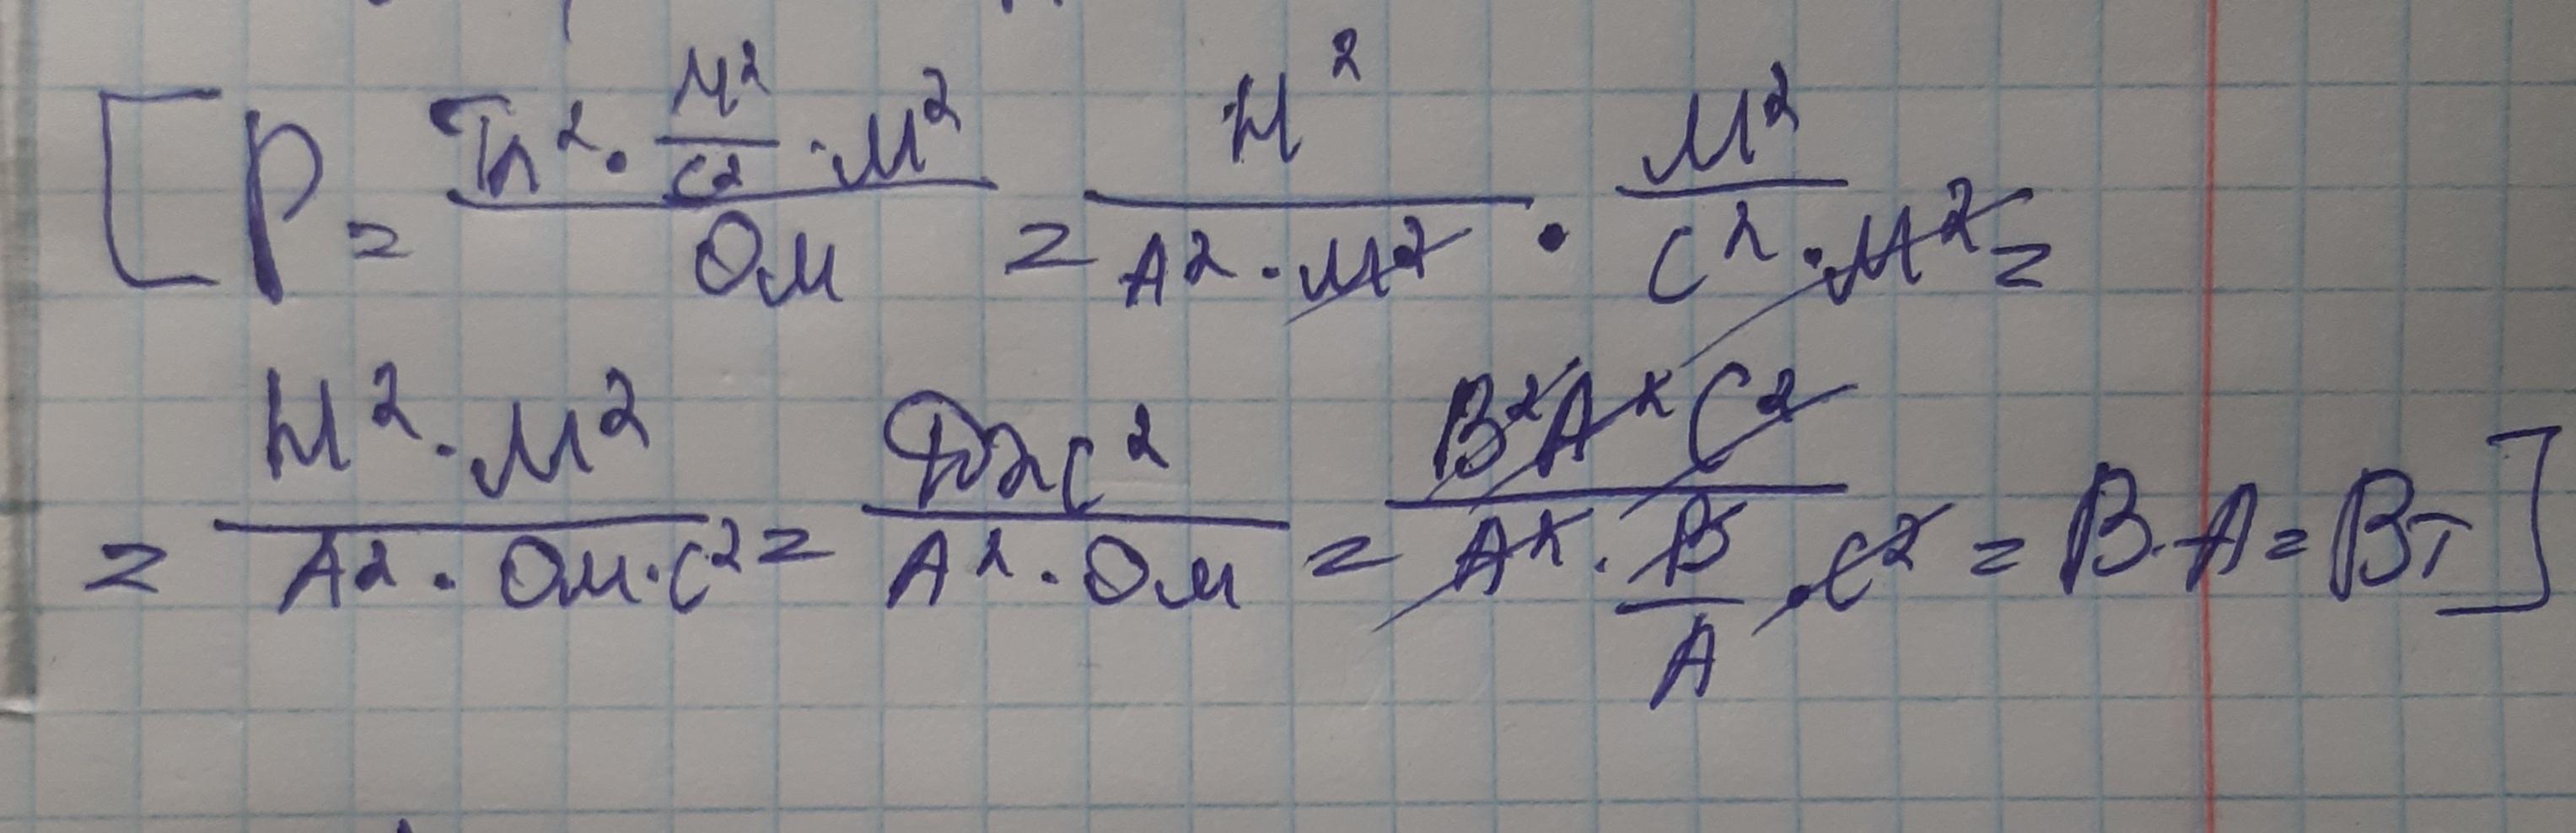 [P = (Тл² · м²/с² · м²)/Ом = Н²/(А² · м²) · м²/(с² · м²) =
= (Н² · м²)/(А² · Ом · с²) = Дж с²/(А² · Ом) = В² А² С²/(А² · В/А · с²) = В · А = Вт]